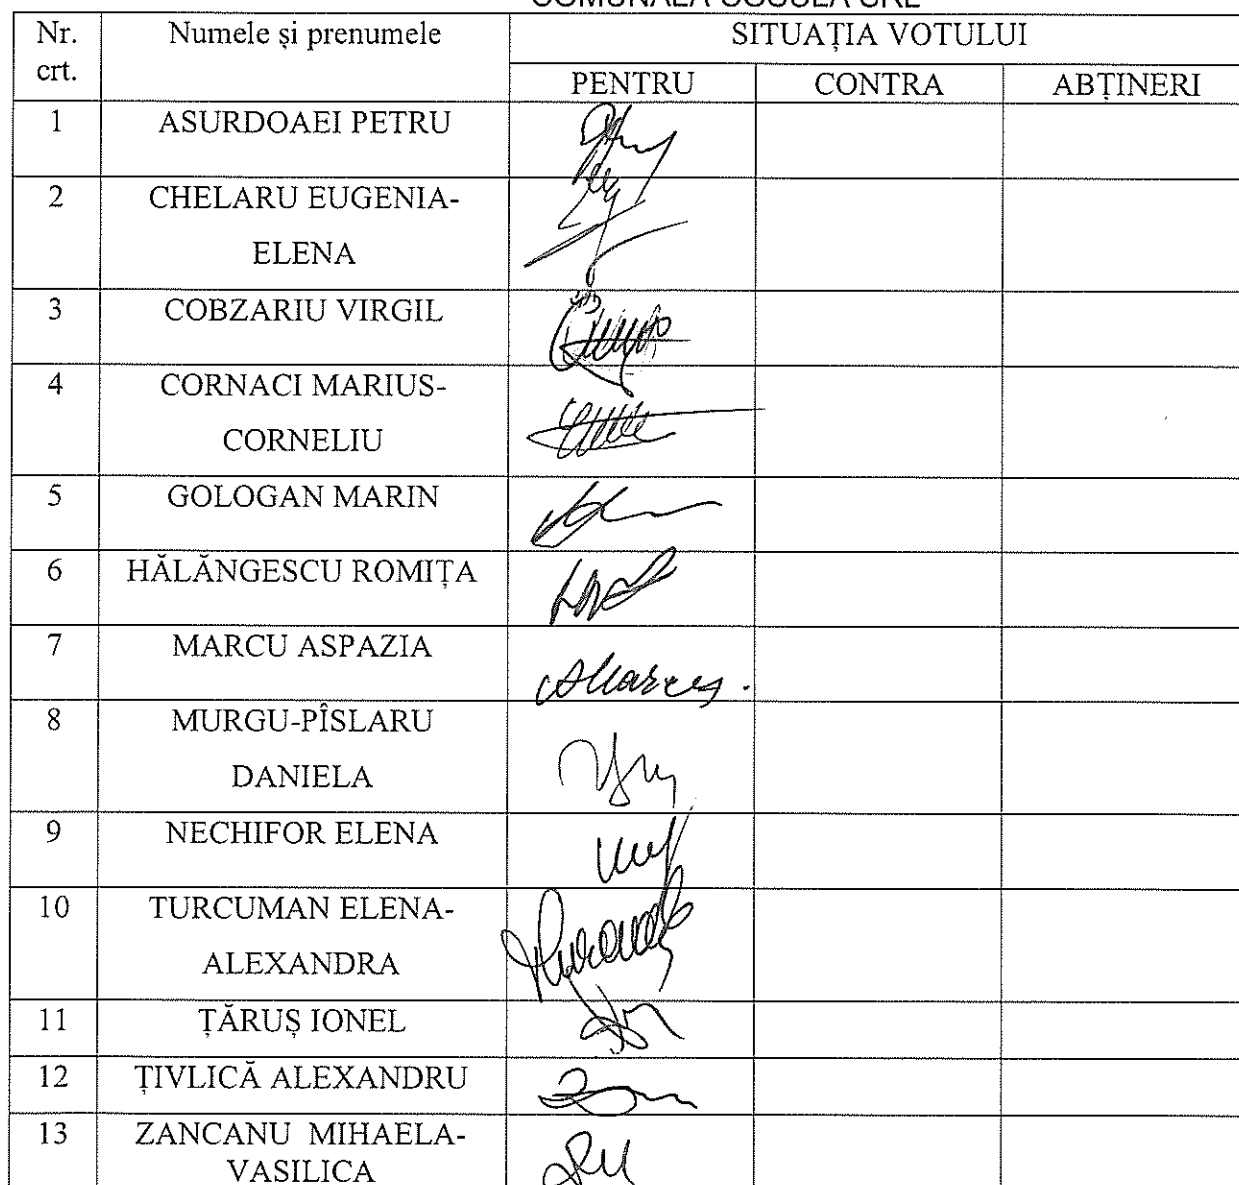 COMUNALĂ COGULA SRL
Nr. crt.
Numele și prenumele
SITUAȚIA VOTULUI
PENTRU
CONTRA
ABȚINERI
1 ASURDOAEI PETRU
2 CHELARU EUGENIA-
ELENA
3 COBZARIU VIRGIL
4 CORNACI MARIUS-
CORNELIU
5 GOLOGAN MARIN
6 HĂLĂNGESCU ROMIȚA
7 MARCU ASPAZIA
8 MURGU-PÎSLARU
DANIELA
9 NECHIFOR ELENA
10 TURCUMAN ELENA-
ALEXANDRA
11 ȚĂRUȘ IONEL
12 ȚIVLICĂ ALEXANDRU
13 ZANCANU MIHAELA-
VASILICA